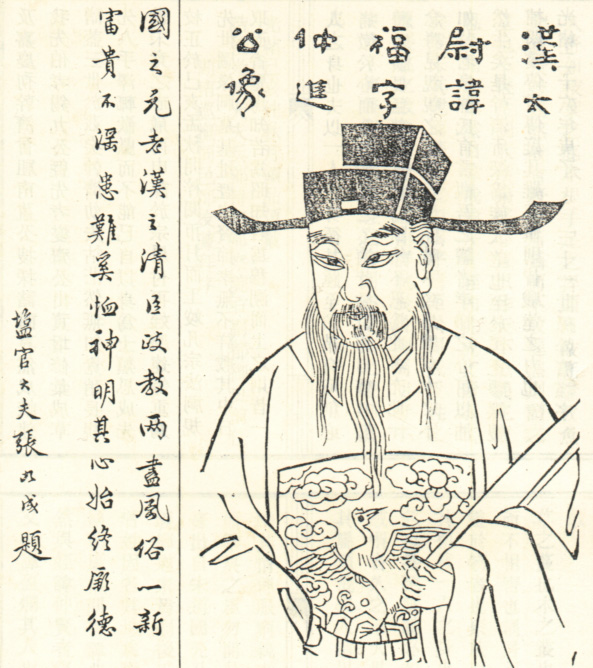 漢太
尉諱
福字
仲進
公像
國之元老漢之清臣政教两盡風俗一新
富貴不淫患難奚恤神明其心始終厥德
塩官大夫張九成題